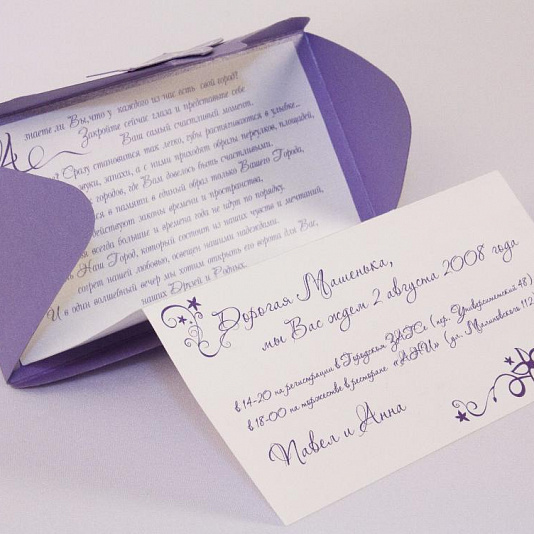 знаете ли Вы, что у каждого из нас есть свой город?
Закройте сейчас глаза и представьте себе
Ваш самый счастливый момент.
Сразу становится так легко, губы растягиваются в улыбке...
звуки, запахи, а с ними приходят образы переулков, площадей,
городов, где Вам довелось быть счастливыми.
в памяти в единый образ только Вашего Города,
действуют законы времени и пространства,
всегда больше и времена года не идут по порядку.
Наш Город, который состоит из наших чувств и мечтаний,
согрет нашей любовью, освещен нашими надеждами.
И в один волшебный вечер мы хотим открыть его ворота для Вас,
наших Друзей и Родных.
Дорогая Машенька,
мы Вас ждем 2 августа 2008 года
в 14-20 на регистрации в Городском ЗАГСе (пер. Университетский 48)
в 18-00 на торжестве в ресторане «АНИ» (ул. Малиновского 112
Павел и Анна